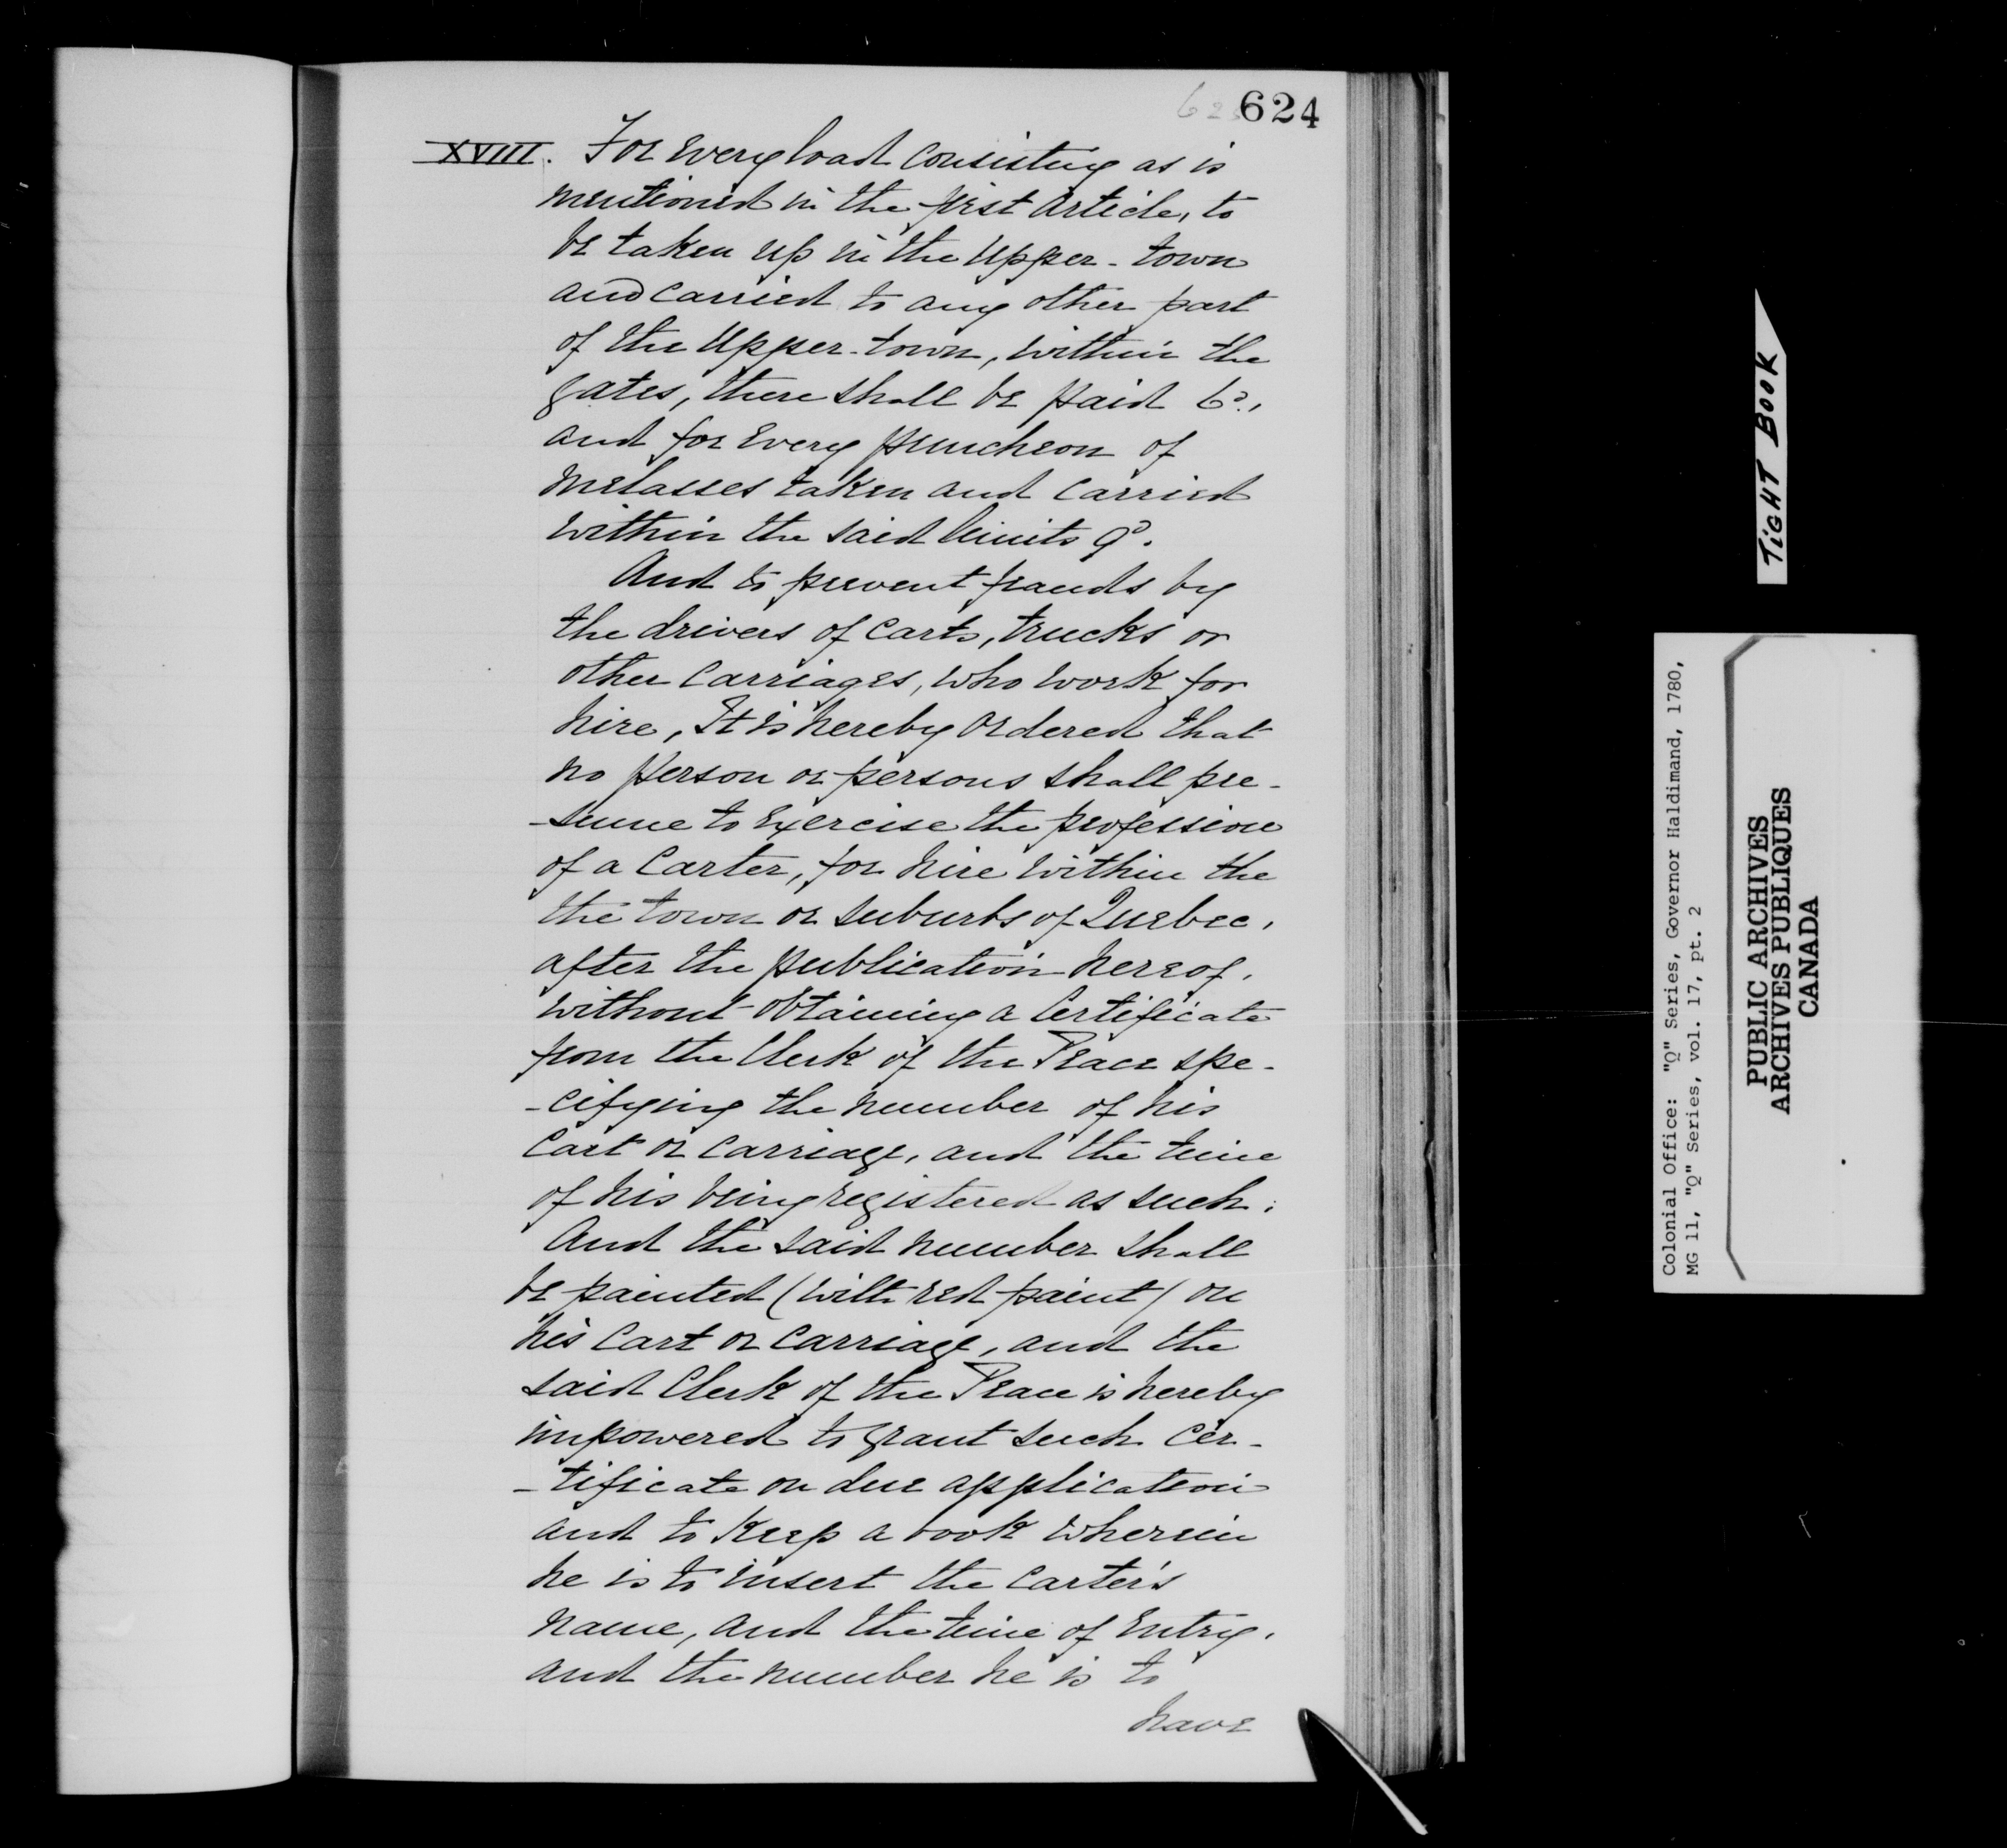 624
XVIII. For every load consisting as is
mentioned in the first Article, to
be taken up in the Upper-town
and carried to any other part
of the Upper-town, within the
gates, there shall be paid 6d.,
and for every puncheon of
melasses taken and carried
within the said limits 9d.
And to prevent frauds by
the drivers of carts, trucks or
other carriages, who work for
hire, It is hereby ordered that
no person or persons shall pre-
-sume to exercise the profession
of a Carter, for hire within the
the town or suburbs of Quebec,
after the publication hereof,
without obtaining a Certificate
from the Clerk of the Peace spe-
-cifying the number of his
cart or carriage, and the time
of his being registered as such:
And the said number shall
be painted (with red paint) on
his cart or carriage, and the
said Clerk of the Peace is hereby
impowered to grant such Cer-
-tificate on due application
and to keep a book wherein
he is to insert the carter's
name, and the time of entry,
and the number he is to
have
TIGHT BOOK
Colonial Office: "Q" Series, Governor Haldimand, 1780,
MG 11, "Q" Series, vol. 17, pt. 2
PUBLIC ARCHIVES
ARCHIVES PUBLIQUES
CANADA